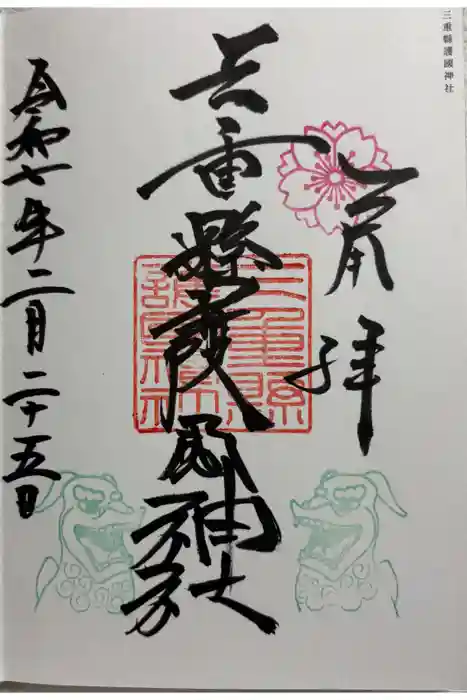 三重縣護國神社
奉拝
三重縣護國神社
三重縣
護國神社
令和七年二月二十五日